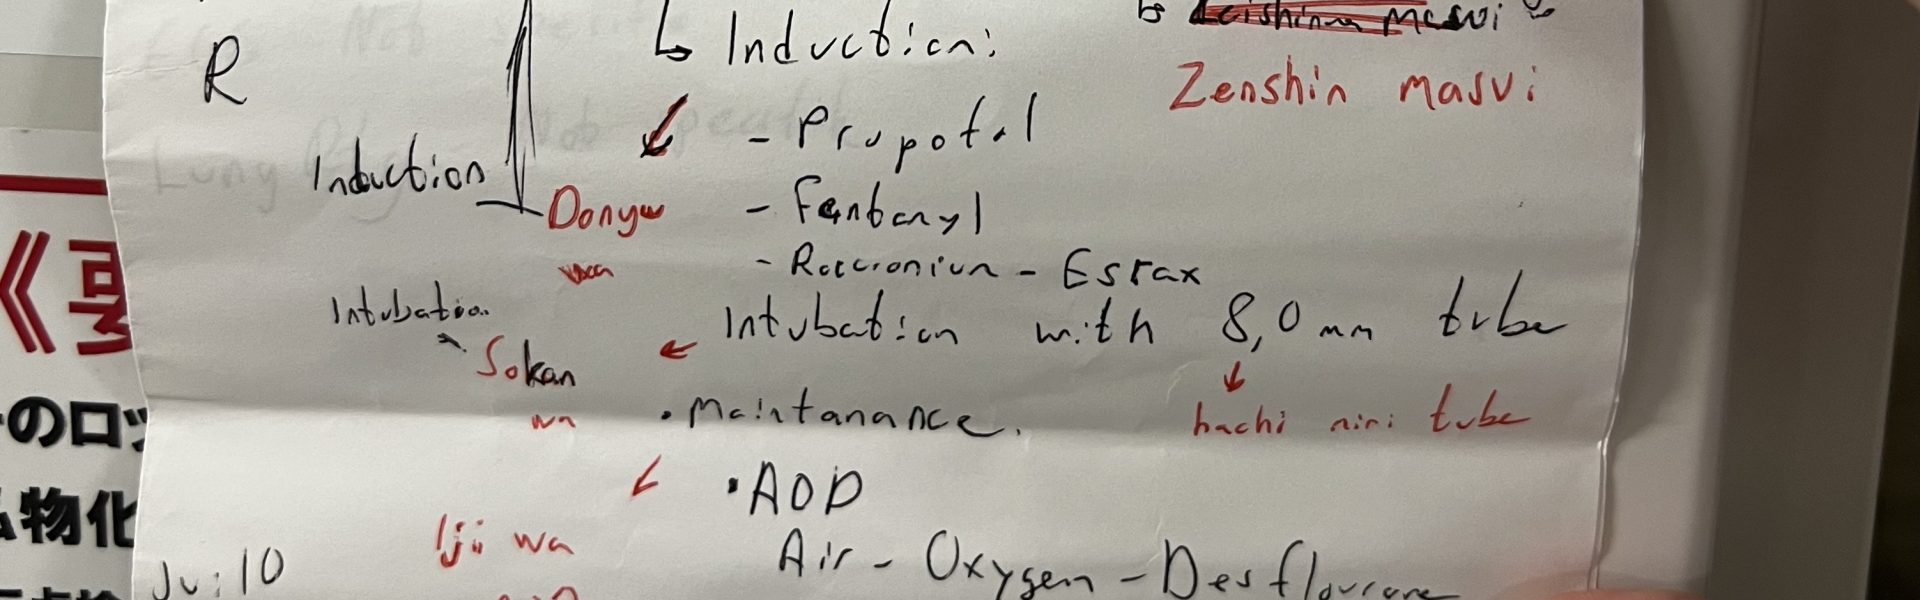 R
↳ Induction:
Zenshin masui
- Propofol
Induction
Donyu
wa
- Fentanyl
- Roccronium - Esrax
Intubation
Intubation with 8,0 mm tube
Sokan
wa
hachi miri tube
• Maintanance.
• AOD
Iji wa
Air - Oxygen - Desflourane
Jui 10
《
のロッ
物化